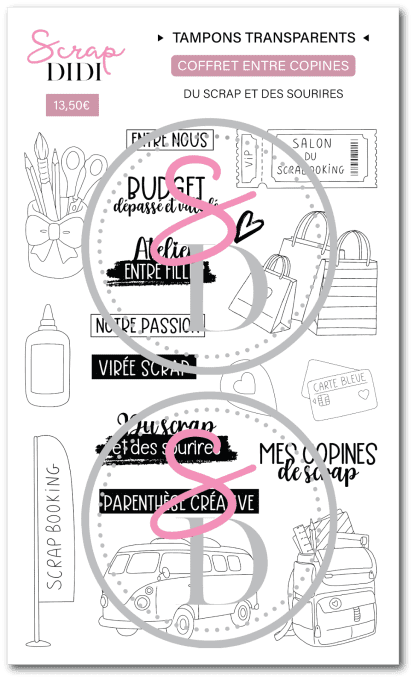 Scrap
DIDI
TAMPONS TRANSPARENTS
COFFRET ENTRE COPINES
DU SCRAP ET DES SOURIRES
13,50€
ENTRE NOUS
VIP
SALON
DU
SCRAPBOOKING
BUDGET
dépassé et validé
Atelier
ENTRE FILLES
NOTRE PASSION
VIRÉE SCRAP
CARTE BLEUE
Du scrap
et des sourires
MES COPINES
de scrap
SCRAP BOOKING
PARENTHÈSE CRÉATIVE
S
D
S
D